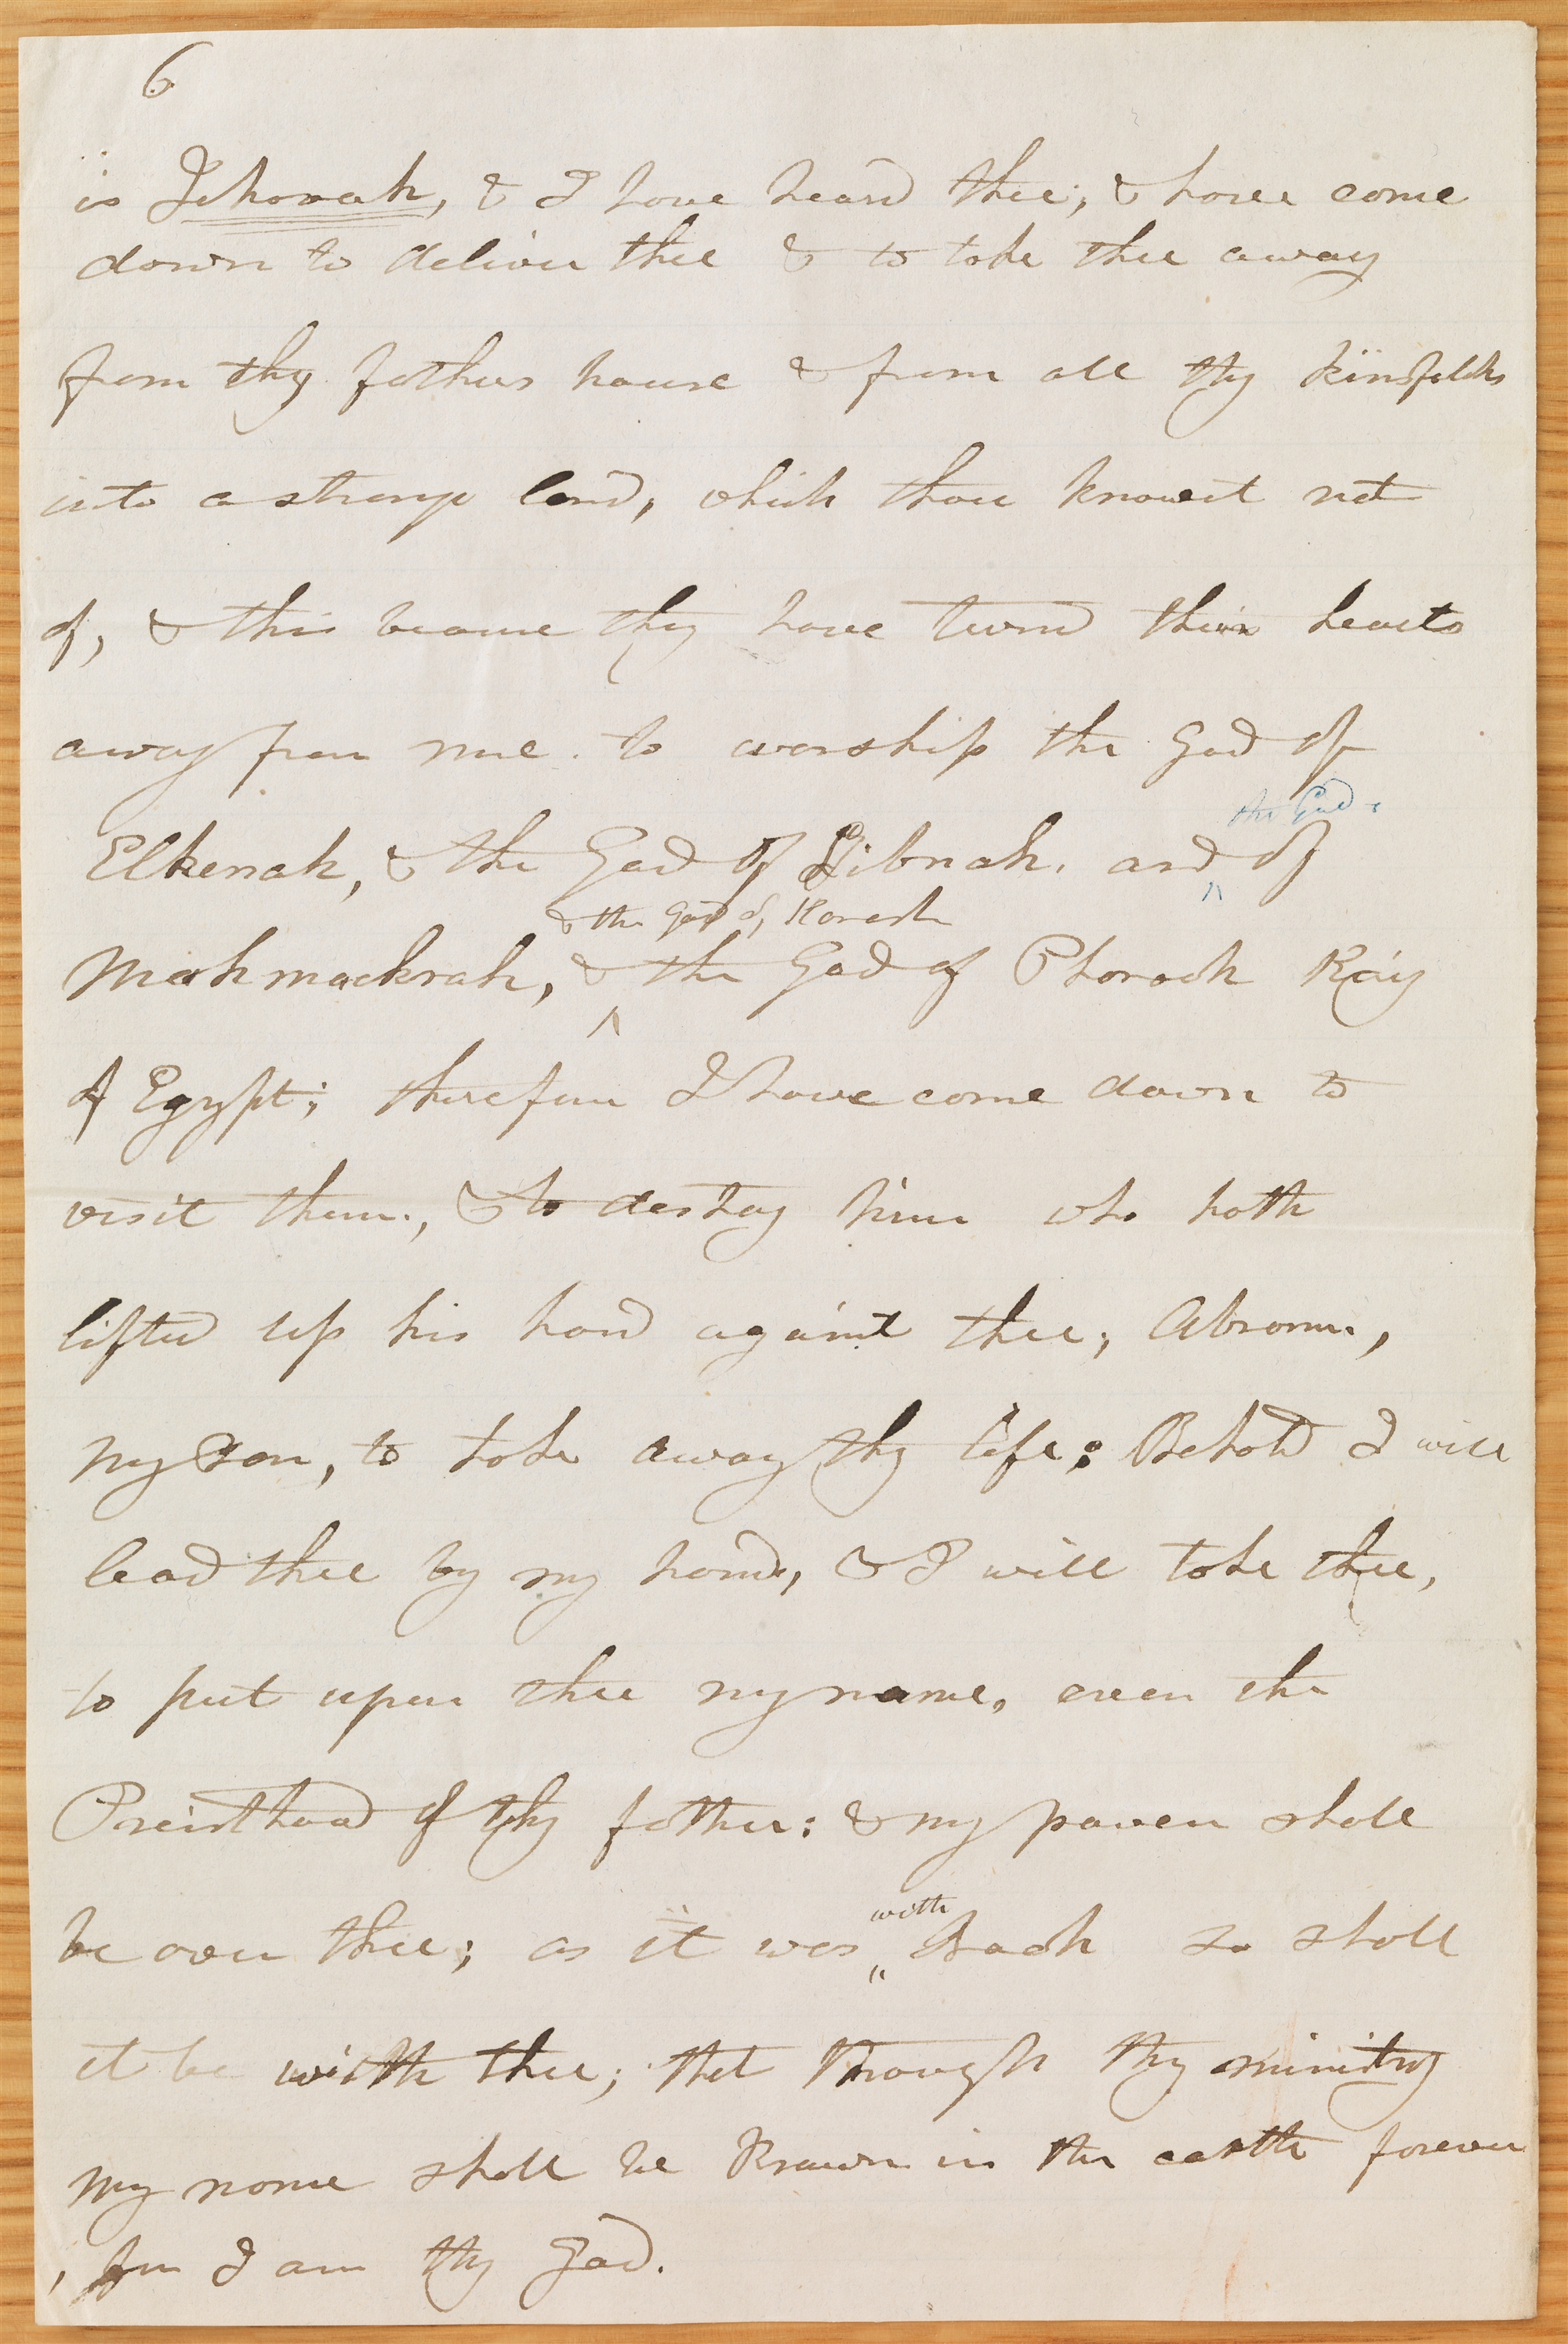 6
is Jehovah, & I have heard thee; & have come
down to deliver thee & to take thee away
from thy fathers house & from all thy kinsfolks
into a strange land, which thou knowest not
of, & this because they have turnd their hearts
away from me. to worship the God of
the God.
Elkenah, & the God of Libnah. and ^ of
& the god of, Korash
Mahmackrah, & ^ the God of Pharaoh King
of Egypt; therefore I have come down to
visit them., & to destroy him who hath
lifted up his hand against thee; Abram.,
my son, to take away thy life: Behold I will
lead thee by my hand, & I will take thee,
to put upon thee my name, even the
Preisthood of thy father: & my power shall
with
be over thee; as it was ^ Noah so shall
it be with thee; that through thy ministry
my name shall be Known in the earth forever
, for I am thy God.